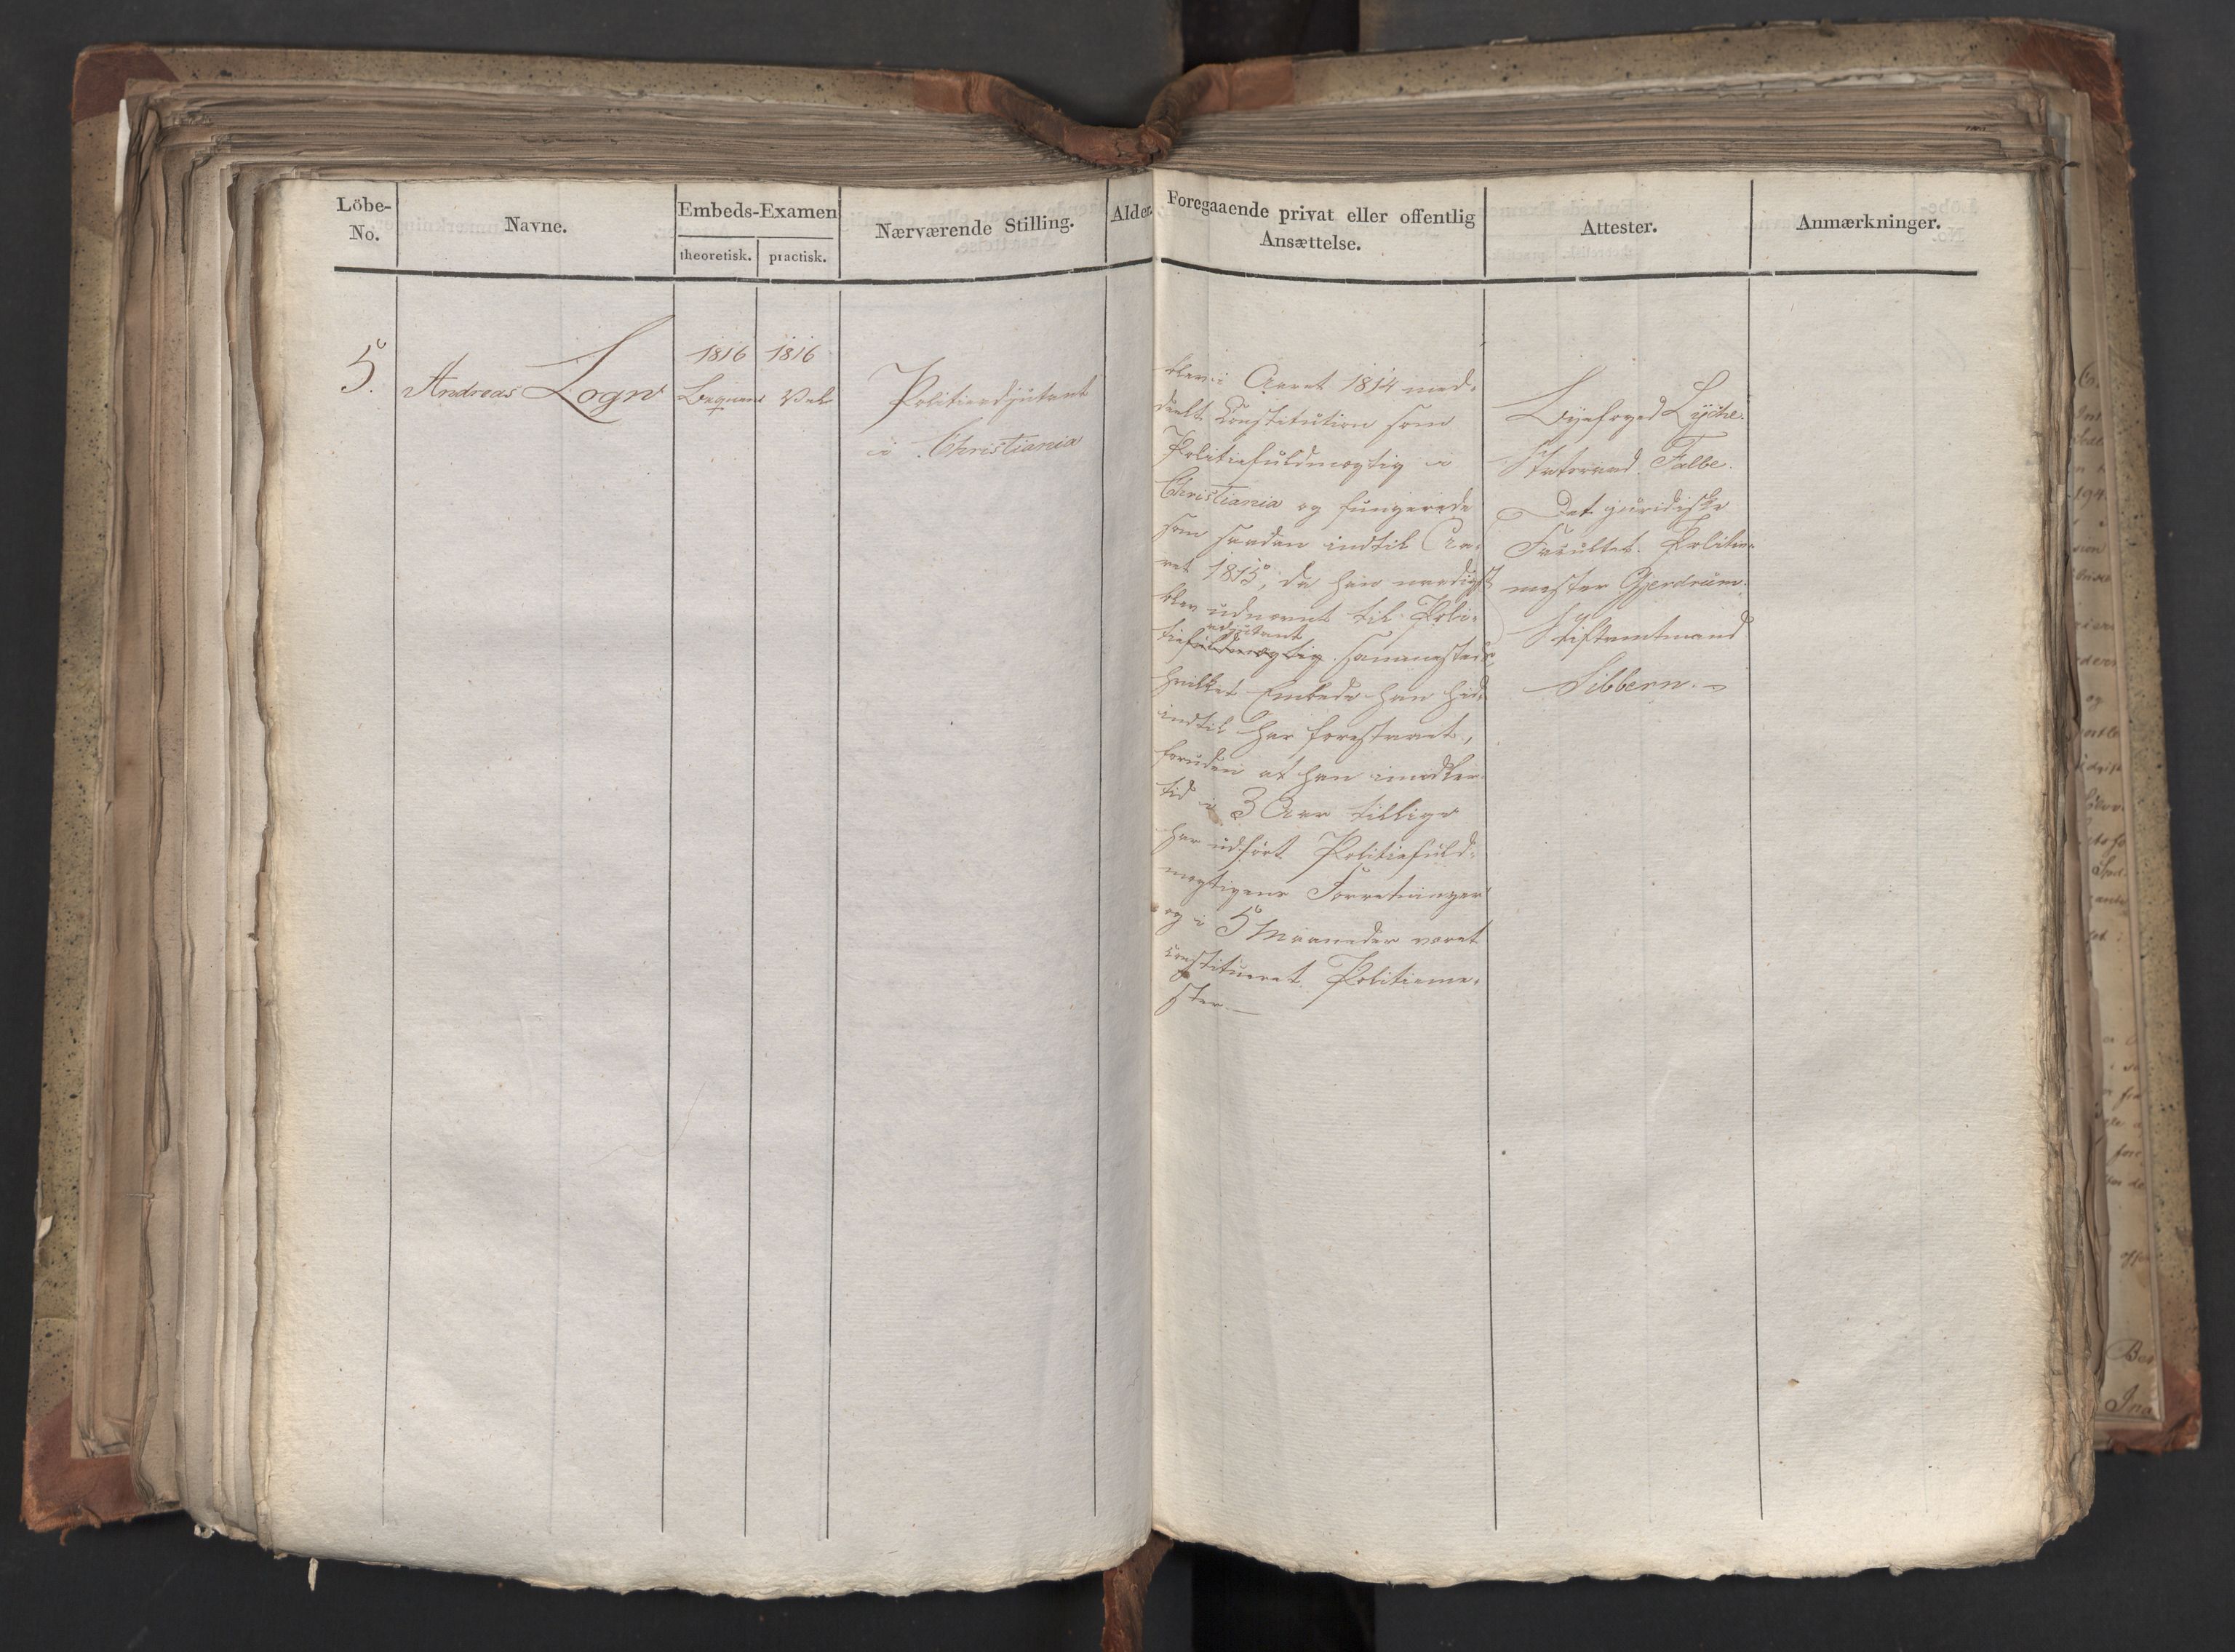 Löbe-
No.
Navne.
Embeds-Examen
theoretisk.
practisk.
Nærværende Stilling.
Alder.
Foregaaende privat eller offentlig
Ansættelse.
Attester.
Anmærkninger.
5.
Andreas Logn
1816
Beqvem
1816
Vel
Politieadjutant
i Christiania
blev i Aaret 1814 med-
deelt Constitution som
Politiefuldmægtig i
Christiania og fungerede
som saadan indtil Aa-
ret 1815, da han naadigst
blev udnævnt til Poli-
adjutant
tiefuldmægtig sammesteds,
hvilket Embede han hid-
indtil har forestaaet,
foruden at han imidler-
tid i 3 Aar tillige
har udført Politiefuld-
mægtigens Forretninger
og i 5 Maaneder været
constitueret Politieme-
ster.
Byefoged Lyche.
Statsraad Falbe.
Det juridiske
Facultet. Politie-
mester Gjerdrum.
Stiftamtmand
Sibbern.